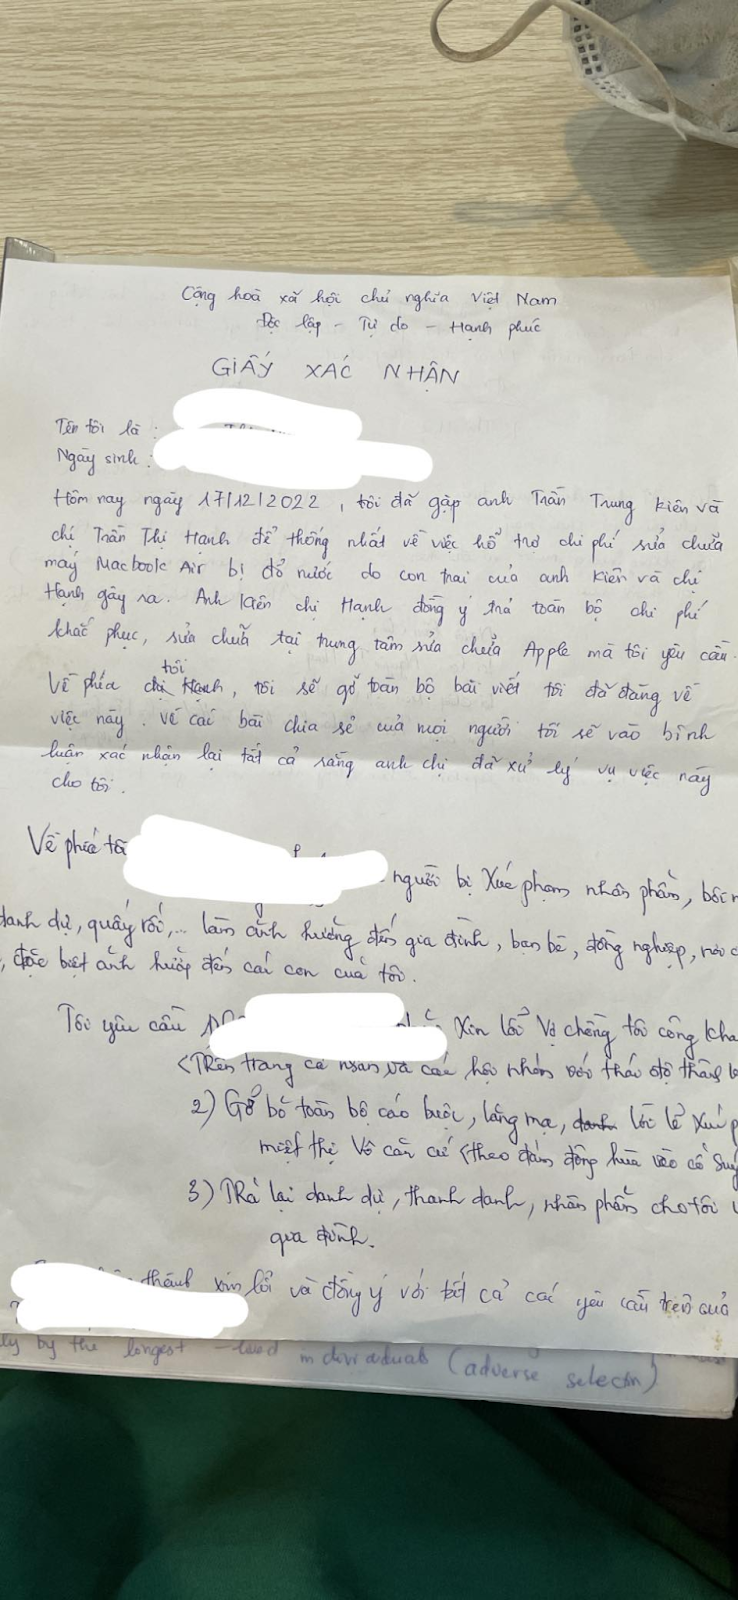 Cộng hoà xã hội chủ nghĩa Việt Nam
Độc lập - Tự do - Hạnh phúc
GIẤY XÁC NHẬN
Tên tôi là :
Ngày sinh :
Hôm nay ngày 17/12/2022, tôi đã gặp anh Trần Trung Kiên và
chị Trần Thị Hạnh để thống nhất về việc hỗ trợ chi phí sửa chữa
máy Macbook Air bị đổ nước do con trai của anh Kiên và chị
Hạnh gây ra. Anh Kiên chị Hạnh đồng ý trả toàn bộ chi phí
khắc phục, sửa chữa tại trung tâm sửa chữa Apple mà tôi yêu cầu.
tôi
Về phía chị Hạnh, tôi sẽ gỡ toàn bộ bài viết tôi đã đăng về
việc này. Về các bài chia sẻ của mọi người tôi sẽ vào bình
luận xác nhận lại tất cả rằng anh chị đã xử lý vụ việc này
cho tôi.
Về phía tôi người bị Xúc phạm nhân phẩm, bôi
danh dự, quấy rối,... làm ảnh hưởng đến gia đình, bạn bè, đồng nghiệp,
, đặc biệt ảnh hưởng đến cái con của tôi.
Tôi yêu cầu Xin lỗi Vợ chồng tôi công kha
(Trên trang cá nhân và các hội nhóm với thái độ
2) Gỡ bỏ toàn bộ cáo buộc, lăng mạ, danh lời lẽ Xúc p
miệt thị Vô căn cứ (theo đám đông hùa vào cổ Suý
3) Trả lại danh dự, thanh danh, nhân phẩm cho tôi
gia đình.
thành xin lỗi và đồng ý với tất cả các yêu cầu trên của
by the longest -lived individuals (adverse selectn)